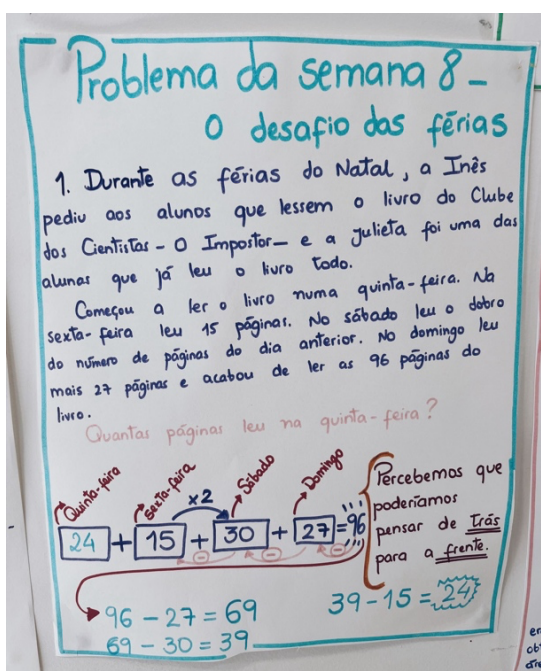 Problema da semana 8 -
O desafio das férias
1. Durante as férias do Natal, a Inês
pediu aos alunos que lessem o livro do Clube
dos Cientistas - O Impostor - e a Julieta foi uma das
alunas que já leu o livro todo.
Começou a ler o livro numa quinta-feira. Na
sexta-feira leu 15 páginas. No sábado leu o dobro
do número de páginas do dia anterior. No domingo leu
mais 27 páginas e acabou de ler as 96 páginas do
livro.
Quantas páginas leu na quinta-feira?
Quinta-feira
Sexta-feira
x2
Sábado
Domingo
24 + 15 + 30 + 27 = 96
- - -
Percebemos que
poderíamos
pensar de trás
para a frente.
96 - 27 = 69
69 - 30 = 39
39 - 15 = 24